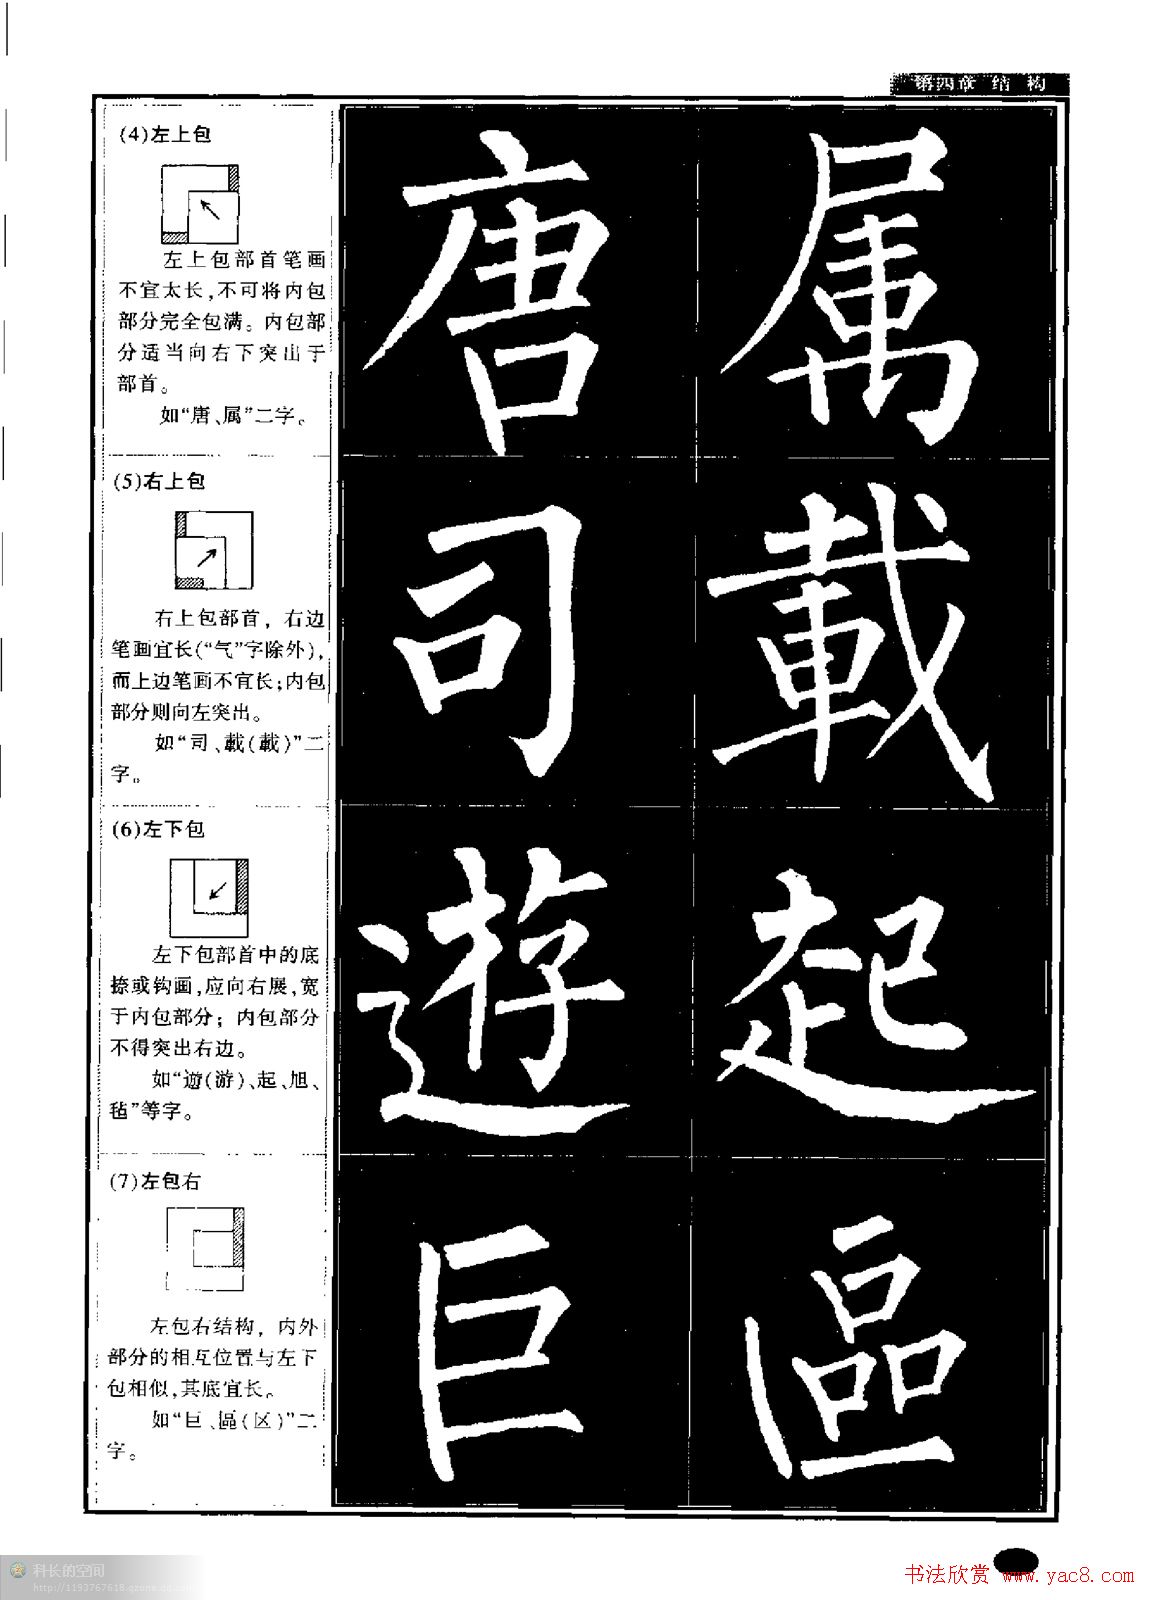 第四章 结 构
(4)左上包
左上包部首笔画
不宜太长,不可将内包
部分完全包满。内包部
分适当向右下突出于
部首。
如“唐、属”二字。
唐 属
(5)右上包
右上包部首，右边
笔画宜长(“气”字除外),
而上边笔画不宜长;内包
部分则向左突出。
如“司、載(載)”二
字。
司 載
(6)左下包
左下包部首中的底
捺或钩画,应向右展,宽
于内包部分；内包部分
不得突出右边。
如“遊(游)、起、旭、
毡”等字。
遊 起
(7)左包右
左包右结构，内外
部分的相互位置与左下
包相似,其底宜长。
如“巨、區(区)”二
字。
巨 區
科长的空间
http://1193767618.qzone.qq.com
书法欣赏 www.yac8.com